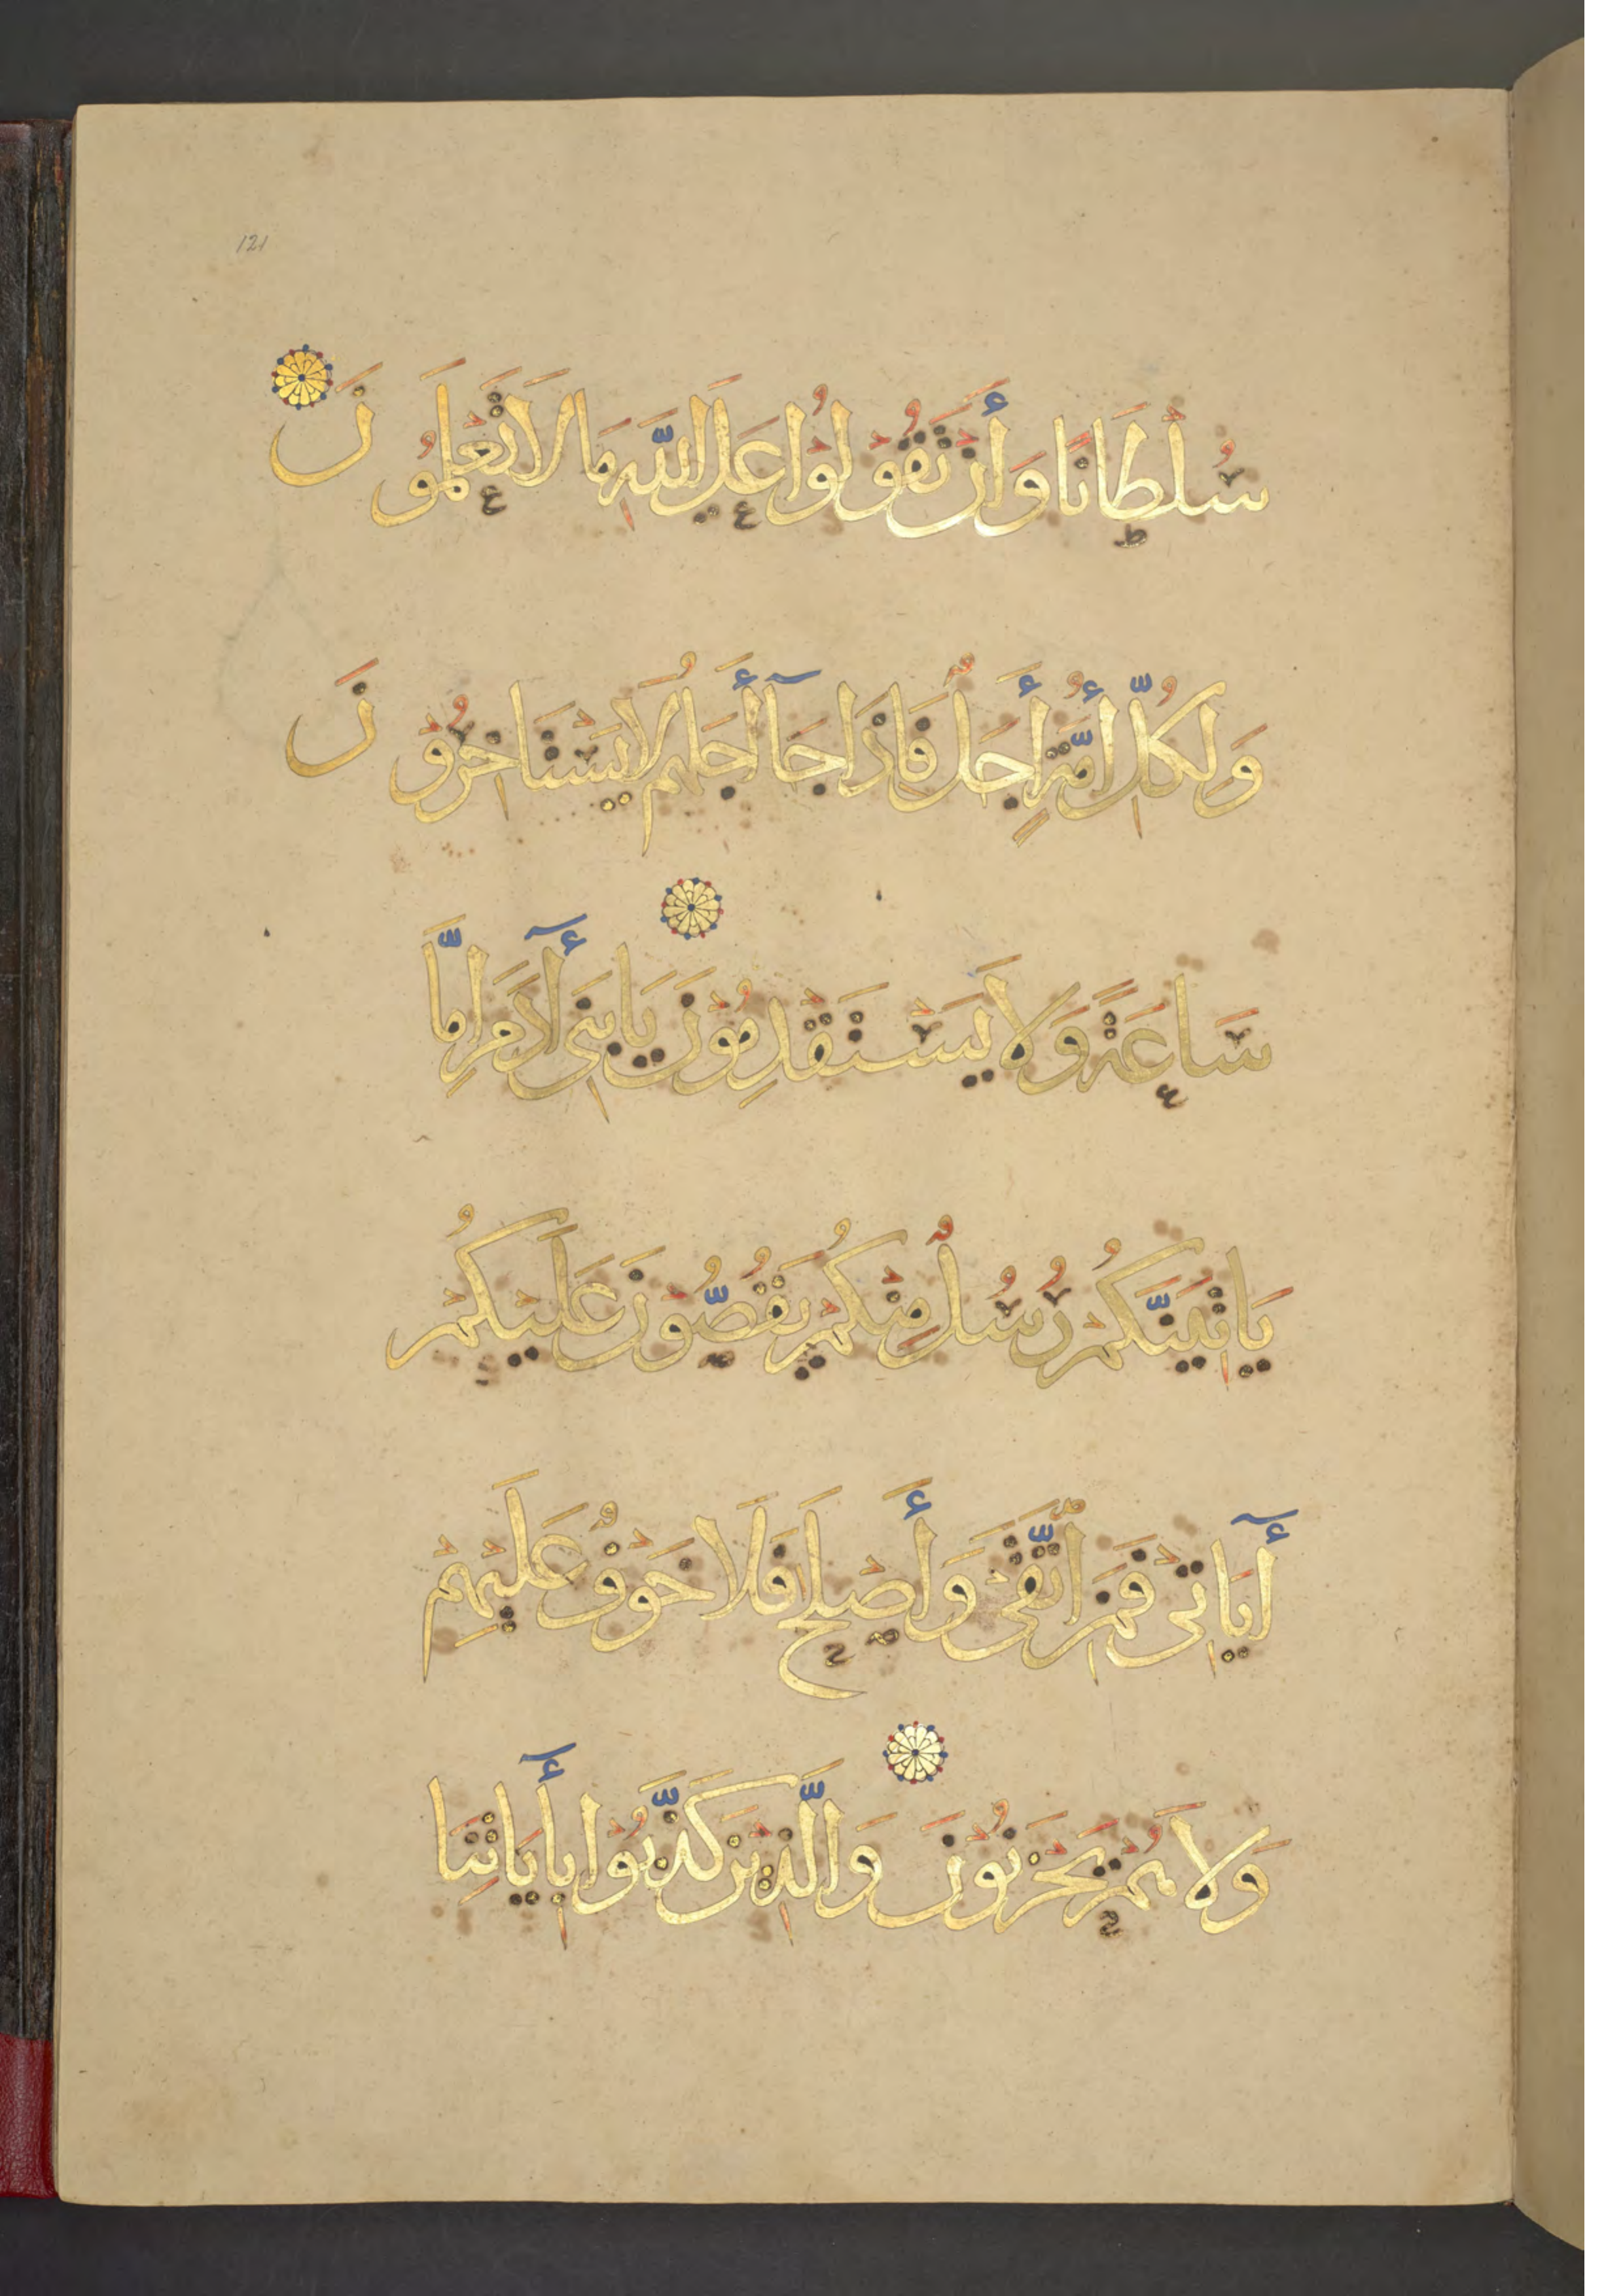 121
سُلْطَانًا وَأَنْ تَقُوْلُوْا عَلَى اللّٰهِ مَا لَا تَعْلَمُوْنَ
وَلِكُلِّ أُمَّةٍ أَجَلٌ فَإِذَا جَآ أَجَلُهُمْ لَا يَسْتَاخِرُوْنَ
سَاعَةً وَلَا يَسْتَقْدِمُوْنَ يَا بَنِى أٓدَمَ إِمَّا
يَاتِيَنَّكُمْ رُسُلٌ مِنْكُمْ يَقُصُّوْنَ عَلَيْكُمْ
أٓيَاتِى فَمَنِ اتَّقَى وَأَصْلَحَ فَلَا خَوْفٌ عَلَيْهِمْ
وَلَا هُمْ يَحْزَنُوْنَ وَالَّذِيْنَ كَذَّبُوْا بِأٓيَاتِنَا